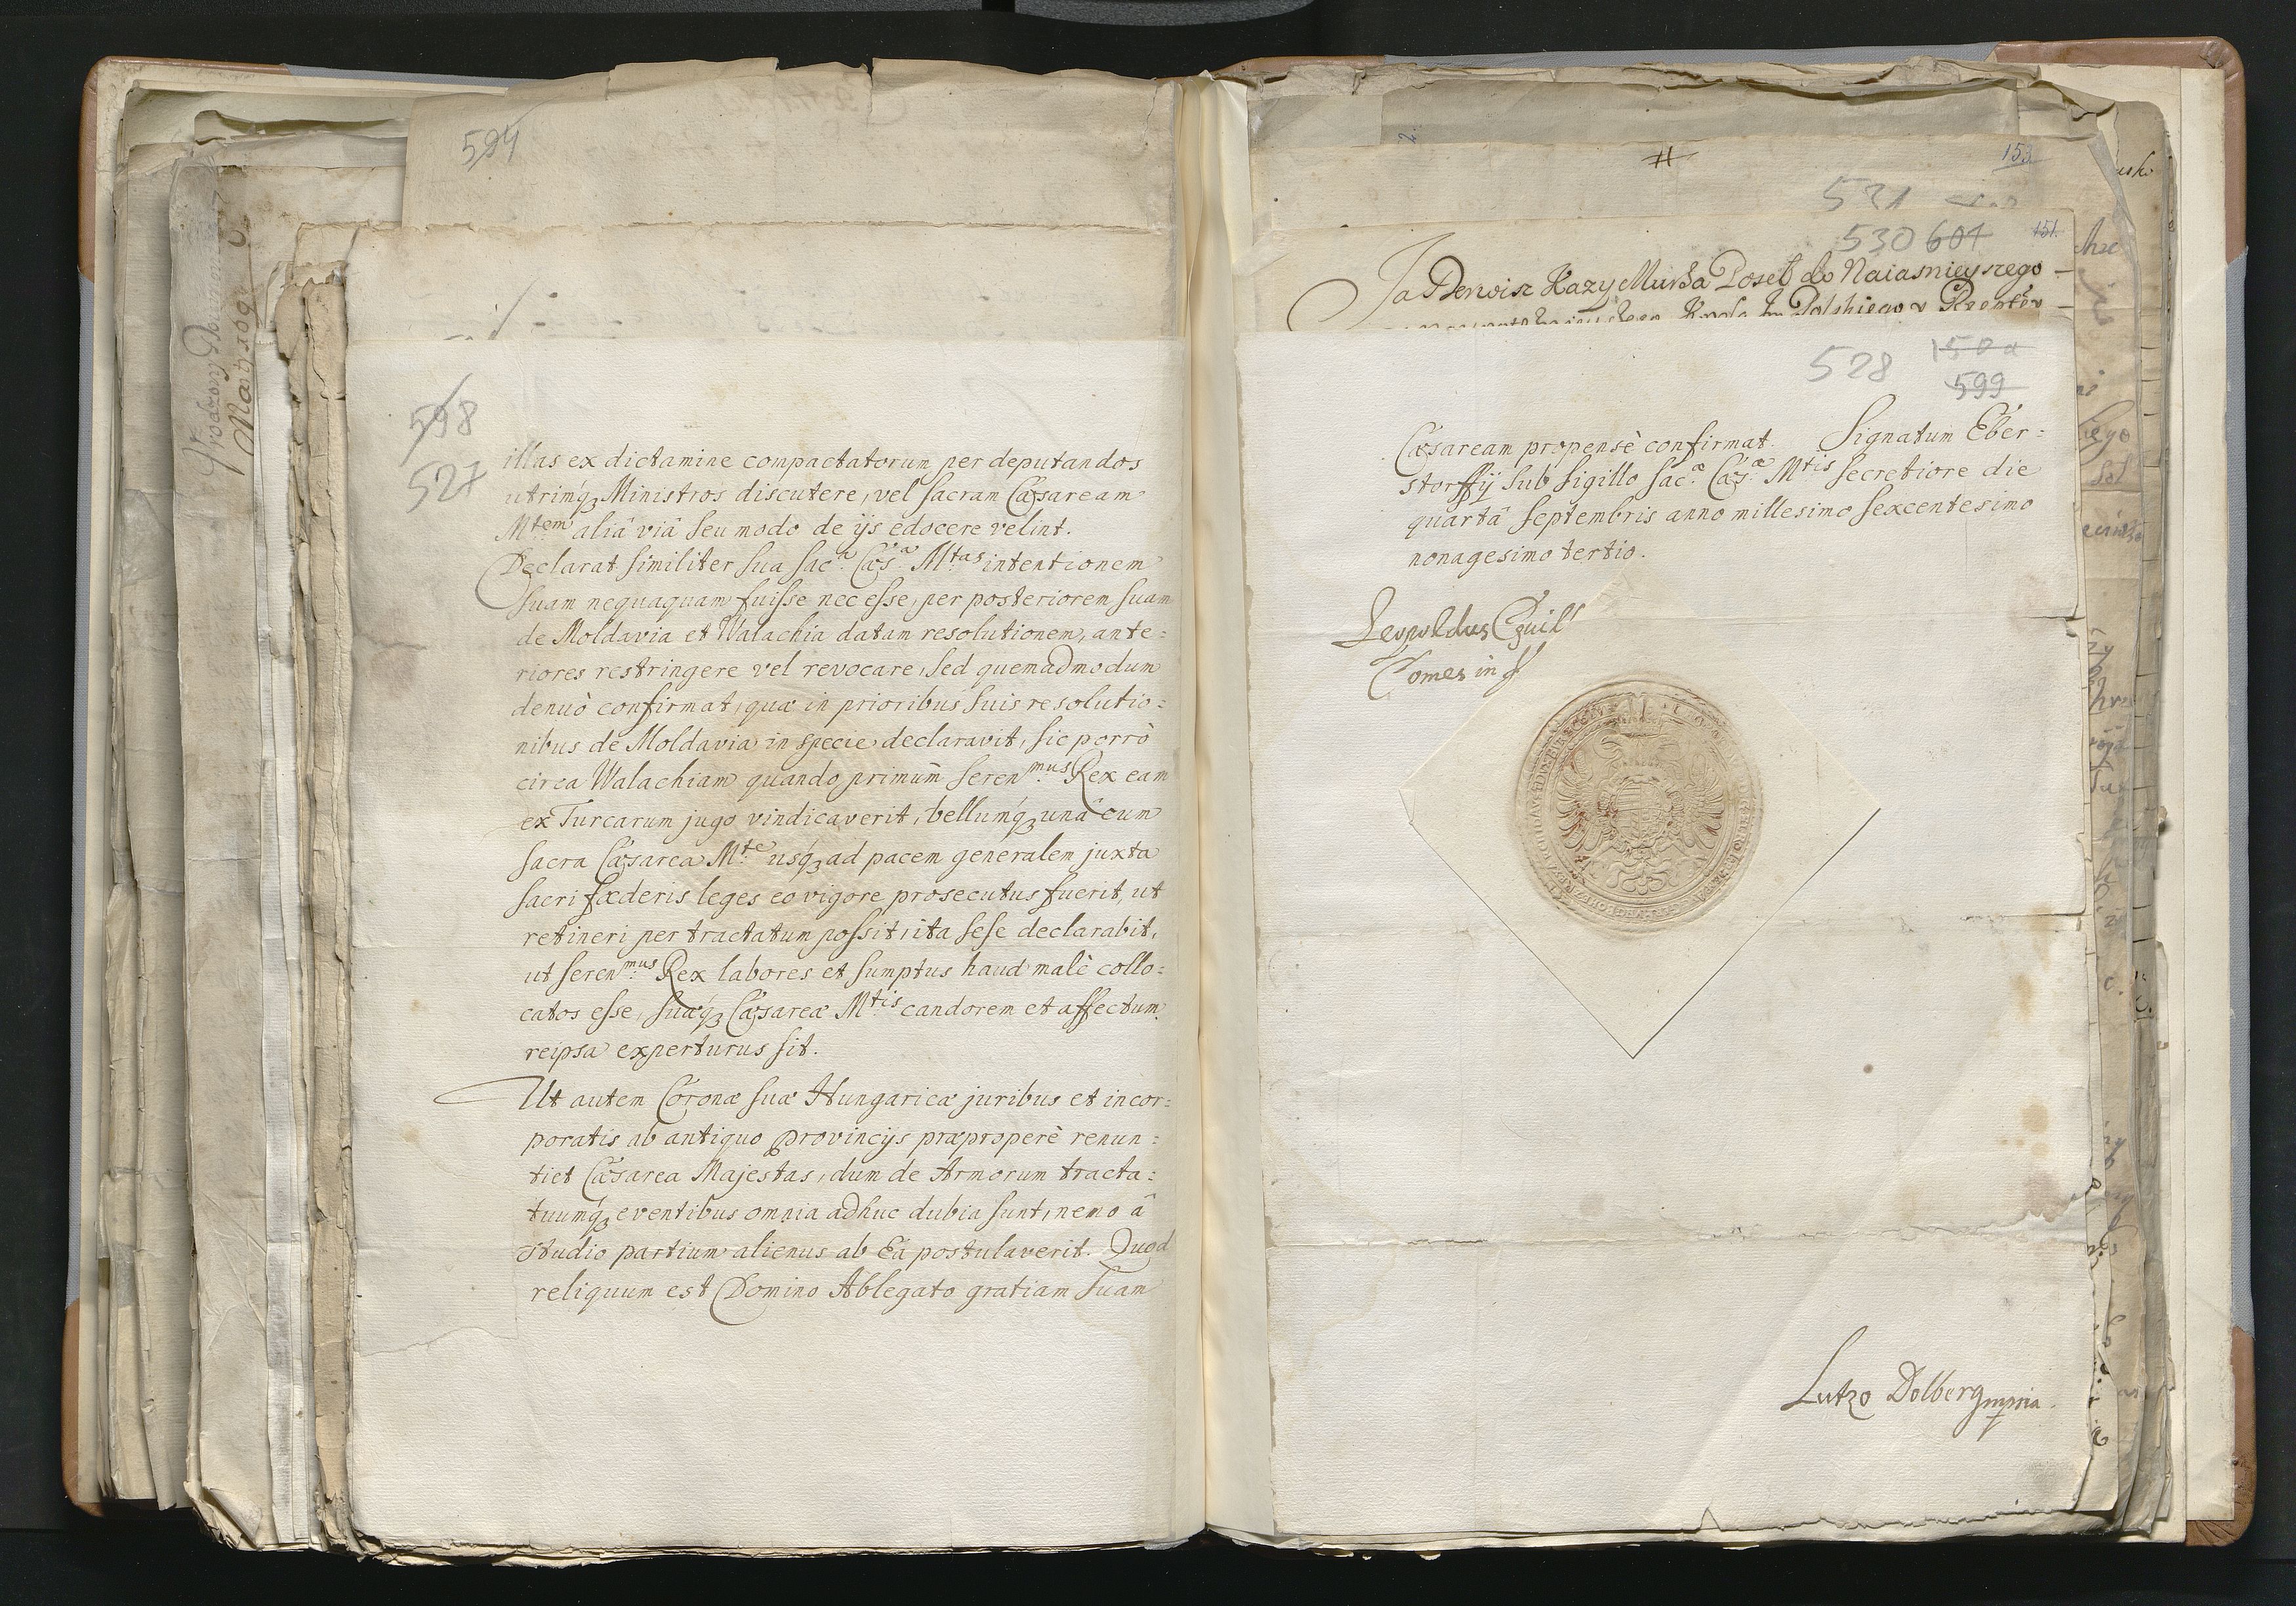 594
598
527
illas ex dictamine compactatorum per deputandos
utrimq3 Ministros discutere, vel sacram Cæsaream
Mtem aliâ viâ seu modo de ijs edocere velint.
Declarat similiter sua sac.a Cæs.a Mtas intentionem
suam nequaquam fuisse nec esse, per posteriorem suam
de Moldavia et Walachia datam resolutionem, ante=
riores restringere vel revocare, sed quemadmodum
denuò confirmat, quæ in prioribus suis resolutio=
nibus de Moldavia in specie declaravit, sic porrò
circa Walachiam quando primùm seren.mus Rex eam
ex Turcarum jugo vindicaverit, bellumq3 unâ cum
sacra Cæsarea Mte usq3 ad pacem generalem juxta
sacri fœderis leges eo vigore prosecutus fuerit, ut
retineri per tractatum possit, ita sese declarabit,
ut seren.mus Rex labores et sumptus haud malè collo=
catos esse, suæq3 Cæsareæ Mtis candorem et affectum
reipsa experturus sit.
Ut autem Coronæ suæ Hungaricæ juribus et incor=
poratis ab antiquo provincijs præproperè renun=
tiet Cæsarea Majestas, dum de Armorum tracta=
tuumq3 eventibus omnia adhuc dubia sunt, nemo â
studio partium alienus ab Eâ postulaverit. Quod
reliquum est Domino Ablegato gratiam suam
153
531
530 601 151.
Ja Derwisz Kazy Murza Posel do Naiasnieyszego
528 150a
599
Cæsaream propensè confirmat. Signatum Eber=
storffij sub sigillo sac.æ Cæs.æ Mtis secretiore die
quartâ septembris anno millesimo sexcentesimo
nonagesimo tertio.
Leopoldus Guil
Comes in
Lutzo Dolberg mpria.